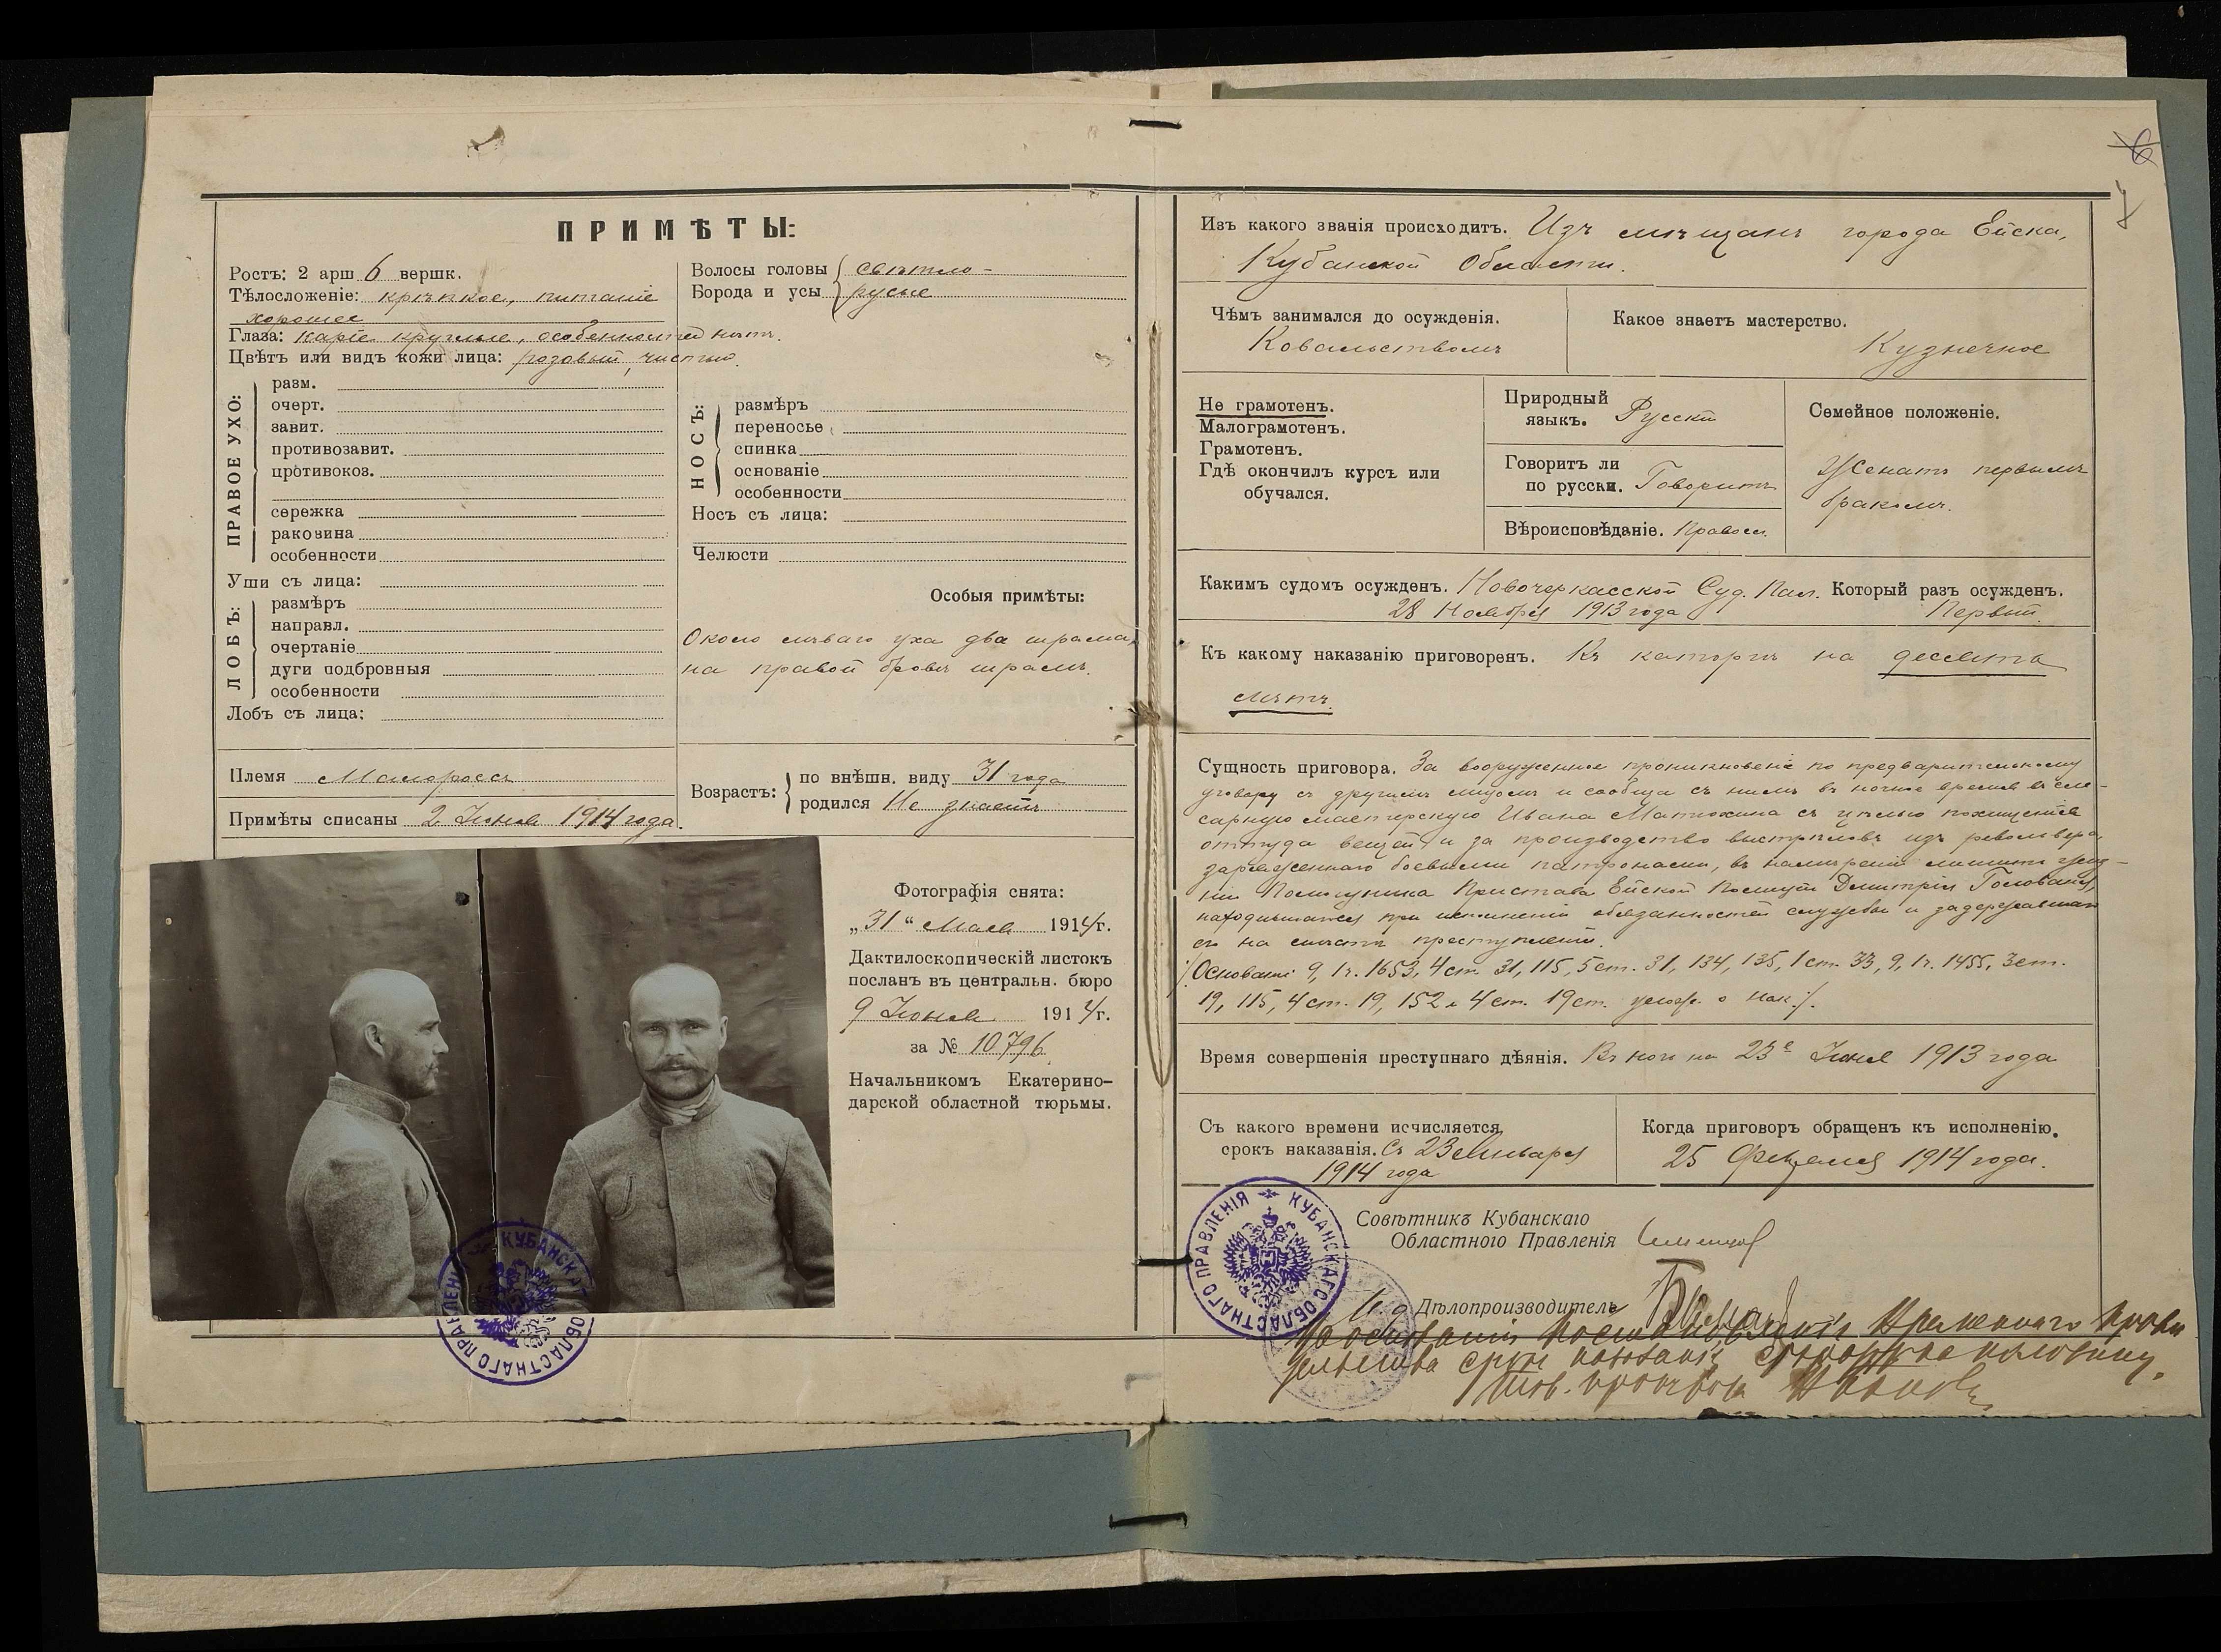 ПРИМѢТЫ:
Ростъ: 2 арш 6 вершк.
Тѣлосложеніе: крѣпкое, питаніе
хорошее
Глаза: карie круглые, особенностей нѣтъ.
Цвѣтъ или видъ кожи лица: розовый, чистый.
Волосы головы свѣтло-
Борода и усы русые
ПРАВОЕ УХО:
разм.
очерт.
завит.
противозавит.
противокоз.
сережка
раковина
особенности
Уши съ лица:
ЛОБЪ:
размѣръ
направл.
очертаніе
дуги подбровныя
особенности
Лобъ съ лица:
НОСЪ:
размѣръ
переносье
спинка
основаніе
особенности
Носъ съ лица:
Челюсти
Особыя примѣты:
Около лѣваго уха два шрама,
на правой брови шрамъ.
Племя Малороссъ
Примѣты списаны 2 Іюня 1914 года.
Возрастъ:
по внѣшн. виду 31 года
родился Не знаетъ
Фотографія снята:
„31“ Мая 1914 г.
Дактилоскопическій листокъ
посланъ въ центральн. бюро
9 Іюня 1914 г.
за № 10796
Начальникомъ Екатерино-
дарской областной тюрьмы.
КУБАНСКАГО ОБЛАСТНАГО ПРАВЛЕНІЯ
6
Изъ какого званія происходитъ. Изъ мѣщанъ города Ейска,
Кубанской Области.
Чѣмъ занимался до осужденія.
Ковальствомъ
Какое знаетъ мастерство.
Кузнечное
Не грамотенъ.
Малограмотенъ.
Грамотенъ.
Гдѣ окончилъ курсъ или
обучался.
Природный
языкъ. Русскій
Говоритъ ли
по русски. Говоритъ
Вѣроисповѣданіе. Правосл.
Семейное положеніе.
Женатъ первымъ
бракомъ.
Какимъ судомъ осужденъ. Новочеркасской Суд. Пал.
28 Ноября 1913 года
Который разъ осужденъ.
Первый.
Къ какому наказанію приговоренъ. Къ каторгѣ на десять
лѣтъ.
Сущность приговора. За вооруженное проникновеніе по предварительному
уговору съ другимъ лицомъ и сообща съ нимъ въ ночное время въ сле-
сарную мастерскую Ивана Матюхина съ цѣлью похищенія
оттуда вещей и за производство выстрѣловъ изъ револьвера,
заряженнаго боевыми патронами, въ намѣреніи лишить жиз-
ни Помощника Пристава Ейской Полиціи Дмитрія Голованя,
находившагося при исполненіи обязанностей службы и задержавшаго
его на мѣстѣ преступленія.
/Основаніе 9, 1ч. 1653, 4 ст. 31, 115, 5 ст. 31, 134, 135, 1 ст. 33, 9, 1ч. 1455, 3 ст.
19, 115, 4 ст. 19, 152 и 4 ст. 19 ст. улож. о нак./.
Время совершенія преступнаго дѣянія. Въ ночь на 23е Іюня 1913 года
Съ какого времени исчисляется
срокъ наказанія. Съ 23 Января
1914 года
Когда приговоръ обращенъ къ исполненію.
25 Февраля 1914 года.
Совѣтникъ Кубанскаго
Областного Правленія
И. д. Дѣлопроизводитель
КУБАНСКАГО ОБЛАСТНАГО ПРАВЛЕНІЯ
На основаніи Постановленія Временнаго Прави
тельства срокъ наказанія сокращ. на половину.
Тов. прокурора